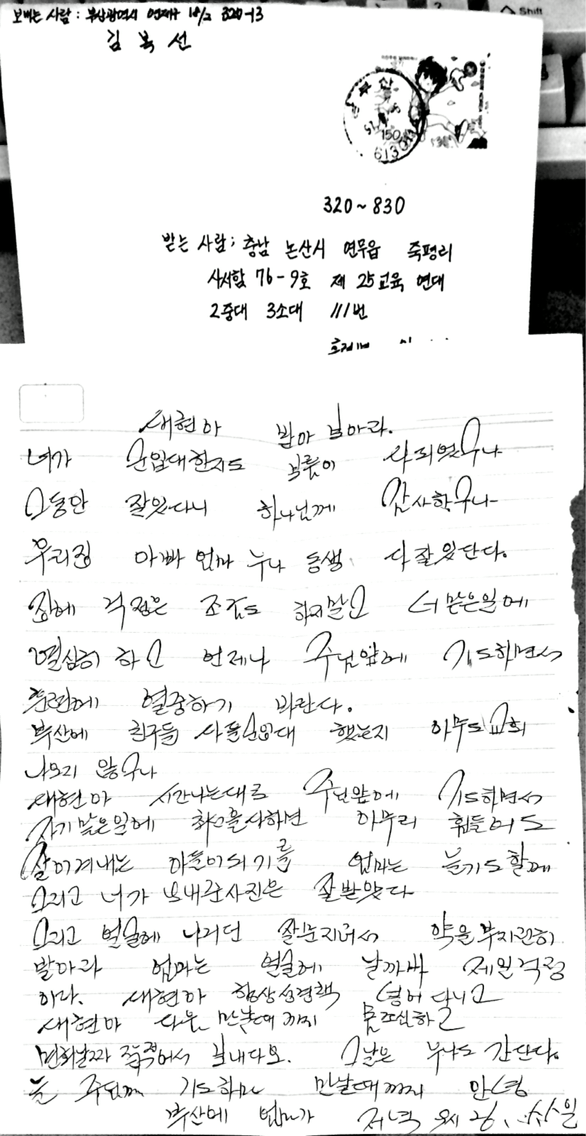 Shift
보내는 사람: 부산광역시 연제구 연2 320-13
김복선
부산
150
320~830
받는 사람; 충남 논산시 연무읍 죽평리
사서함 76-9호 제 25교육 연대
2중대 3소대 111번
새현아 받아 보아라.
너가 군입대한지도 보름이 다되었구나
그동안 잘있다니 하나님께 감사하구나
우리집 아빠 엄마 누나 동생 다잘있단다.
집에 걱정은 조금도 하지말고 너 맡은일에
열심히 하고 언제나 주님앞에 기도하면서
훈련에 열중하기 바란다.
부산에 친구들 다들 입대 했는지 아무도 교회
나오지 않구나
새현아 시간나는대로 주님앞에 기도하면서
자기맡은일에 최선을다하면 아무리 힘들어도
잘이겨내는 아들이되기를 엄마는 늘기도할께
그리고 너가 보내준사진은 잘받았다
그리고 얼굴에 나던 약을부지런히
발아라 엄마는 얼굴에 날까봐 제일걱정
이다. 새현아 항상성경책 넣어다니고
새현아 다음 만날때까지 몸조심하고
면회날짜 적어서 보내다오. 그날은 누나도 간단다.
늘 주님께 기도하며 만날때까지 안녕
부산에 엄마가 저녁